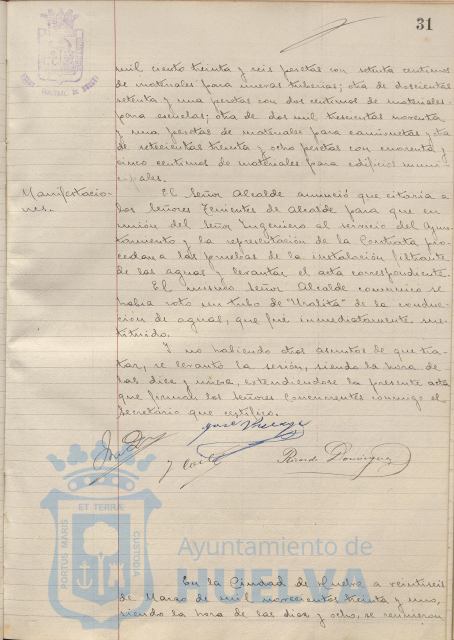 31
mil ciento treinta y seis pesetas con setenta centimos
de materiales para nuevas tuberias; otra de doscientas
setenta y una pesetas con dos centimos de materiales
para escuelas; otra de dos mil trescientas noventa
y una pesetas de materiales para camionetas y otra
de setecientas treinta y ocho pesetas con cuarenta y
cinco centimos de materiales para edificios muni-
cipales.
Manifestacio-
nes.
El Señor Alcalde anunció que citaria a
los Señores Tenientes de Alcalde para que en
unión del Señor Ingeniero al servicio del Ayun-
tamiento y la representación de la Contrata pro-
cedan a las pruebas de la instalación filtrante
de las aguas y levantar el acta correspondiente.
El mismo Señor Alcalde comunico se
habia roto un tubo de "Uralita" de la conduc-
cion de aguas, que fué inmediatamente sus-
tituido.
Y no habiendo otros asuntos de que tra-
tar, se levantó la sesión, siendo la hora de
las diez y nueve, extendiendose la presente acta
que firman los Señores Concurrentes conmigo el
Secretario que certifico.
Ricardo Dominguez
ET TERRA
PORTUS MARIS
CUSTODIA
Ayuntamiento de
HUELVA
En la Ciudad de Huelva a veintiseis
de Marzo de mil novecientos treinta y uno,
siendo la hora de las diez y ocho, se reunieron